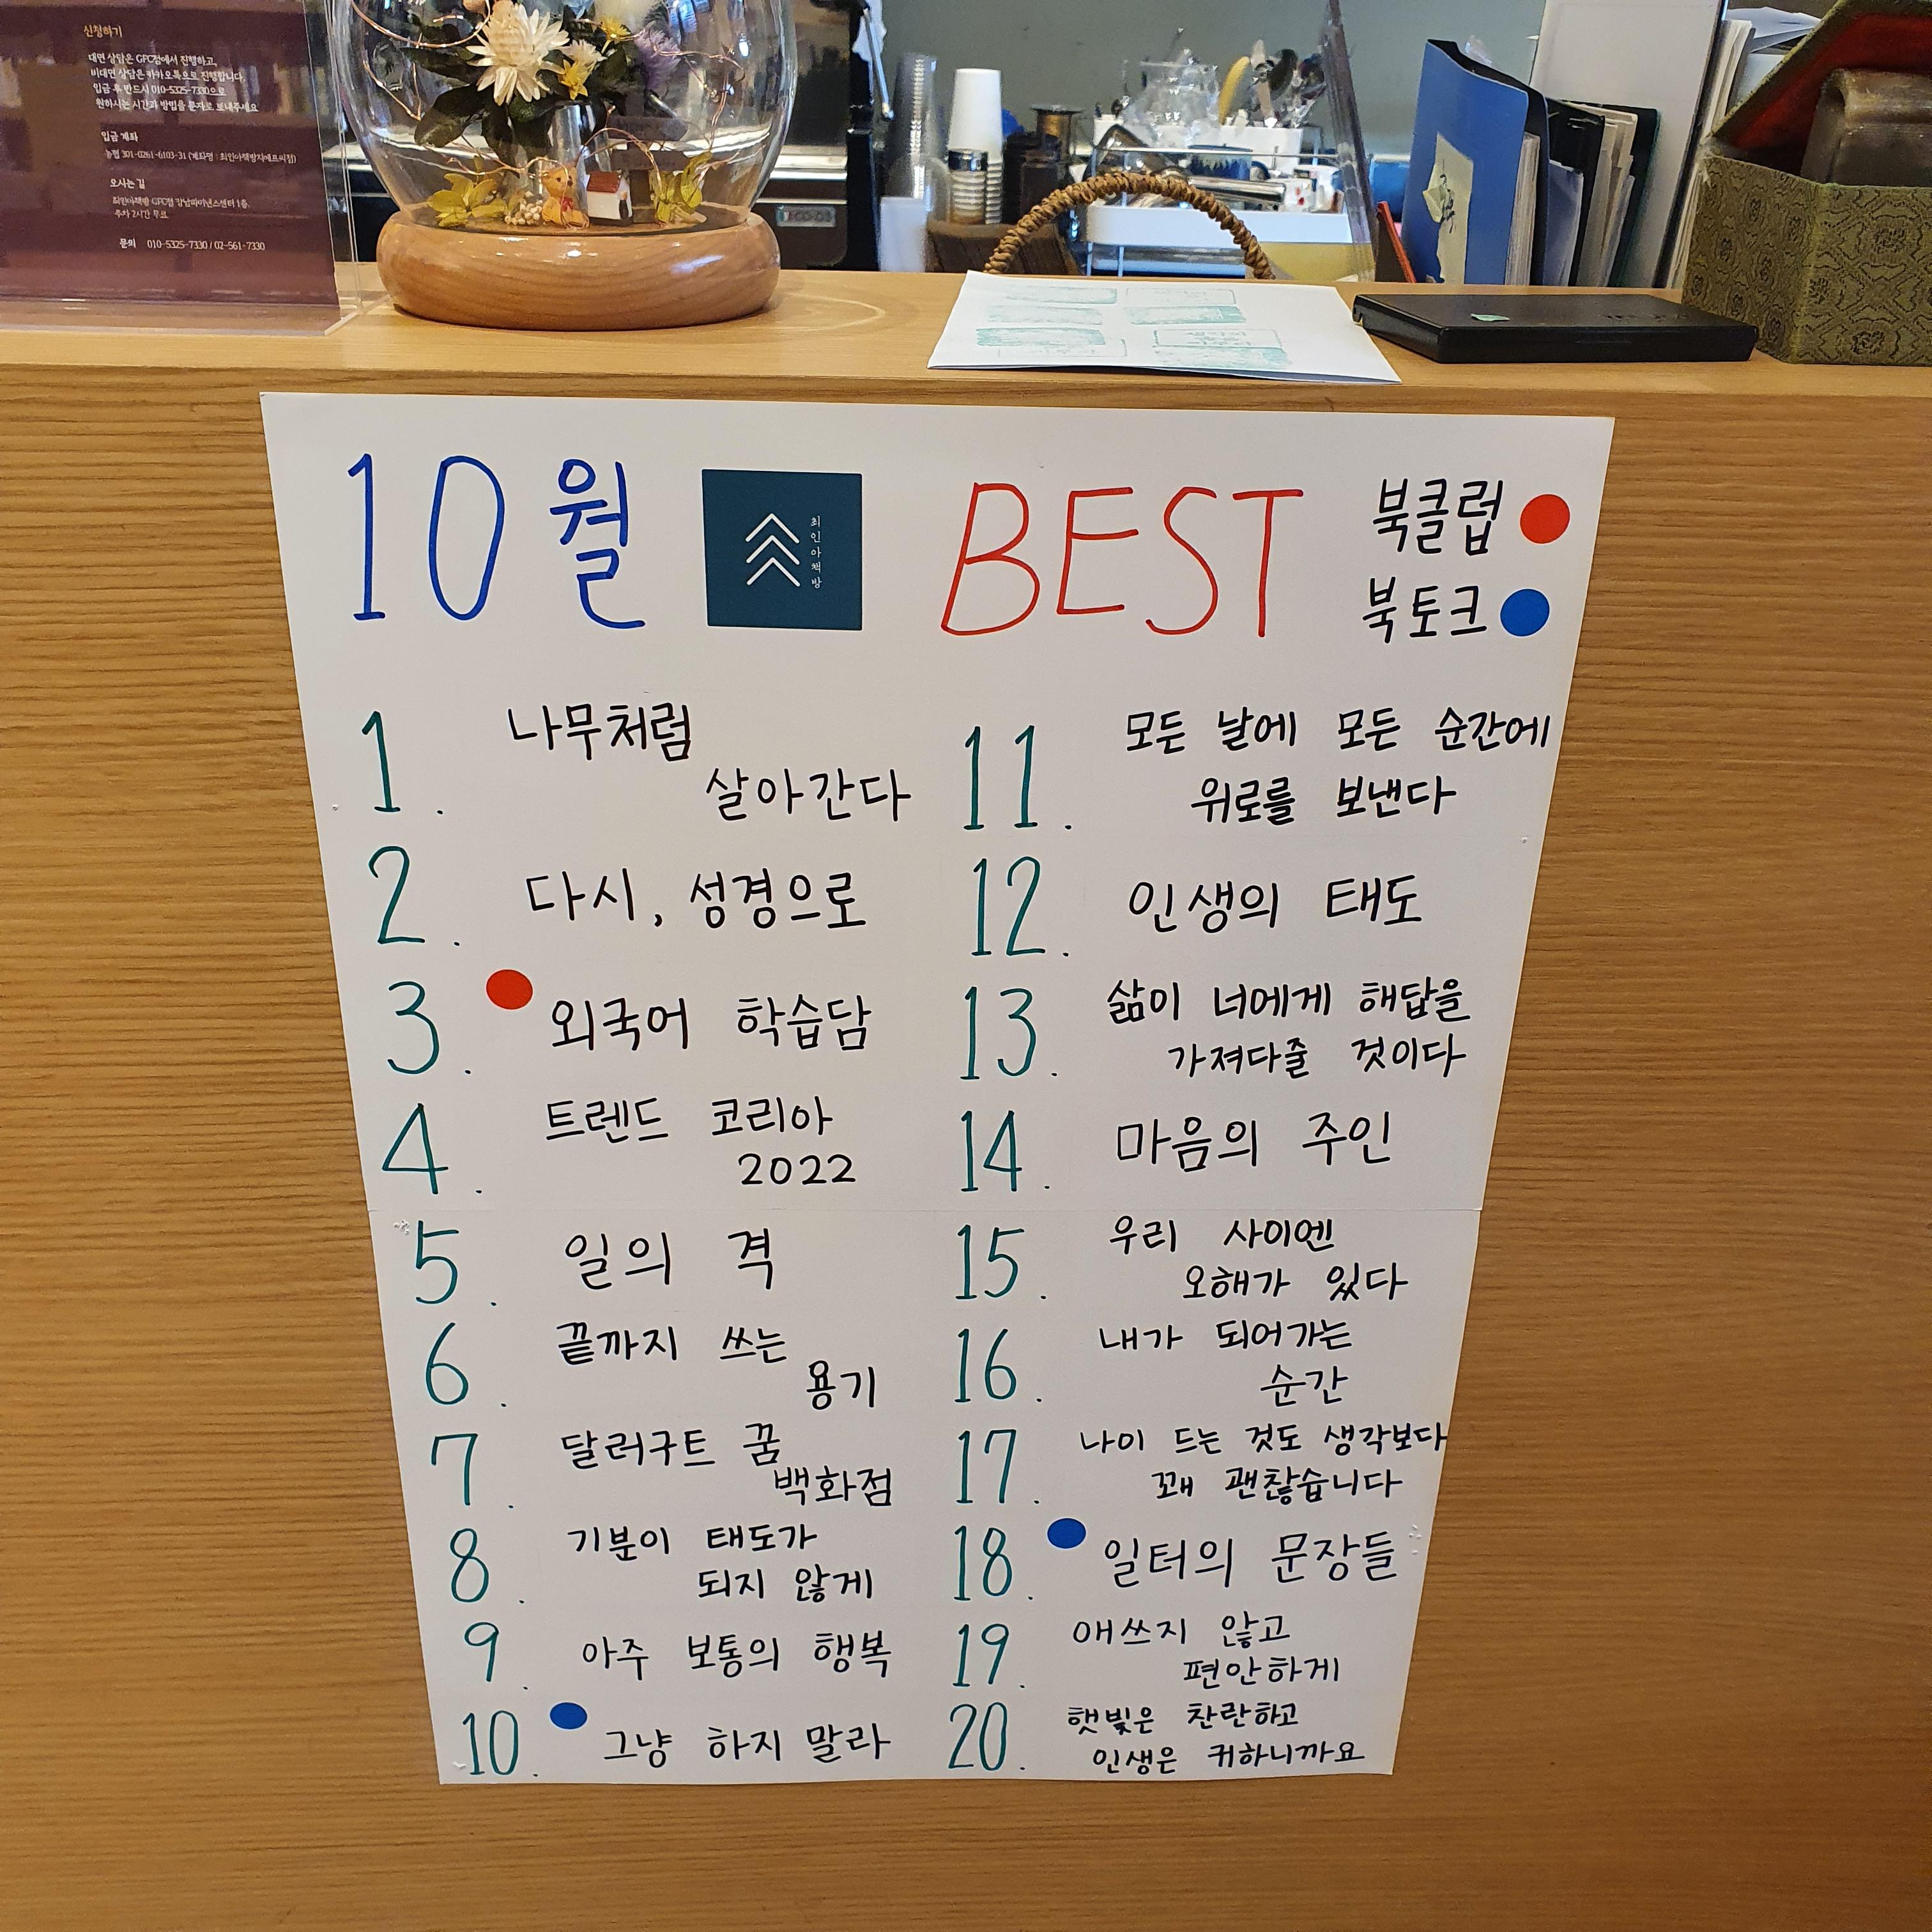 신청하기
대면 상담은 GFC점에서 진행하고,
비대면 상담은 카카오톡으로 진행합니다.
입금 후 반드시 010-5325-7330으로
원하시는 시간과 방법을 문자로 보내주세요
입금 계좌
농협 301-0261-6103-31 (계좌명 : 최인아책방지에프씨점)
오시는 길
최인아책방 GFC점 강남파이낸스센터 1층,
주차 2시간 무료
문의 010-5325-7330 / 02-561-7330
10월
최인아책방
BEST
북클럽
북토크
1. 나무처럼
살아간다
2. 다시, 성경으로
3. 외국어 학습담
4. 트렌드 코리아
2022
5. 일의 격
6. 끝까지 쓰는
용기
7. 달러구트 꿈
백화점
8. 기분이 태도가
되지 않게
9. 아주 보통의 행복
10. 그냥 하지 말라
11. 모든 날에 모든 순간에
위로를 보낸다
12. 인생의 태도
13. 삶이 너에게 해답을
가져다줄 것이다
14. 마음의 주인
15. 우리 사이엔
오해가 있다
16. 내가 되어가는
순간
17. 나이 드는 것도 생각보다
꽤 괜찮습니다
18. 일터의 문장들
19. 애쓰지 않고
편안하게
20. 햇빛은 찬란하고
인생은 귀하니까요